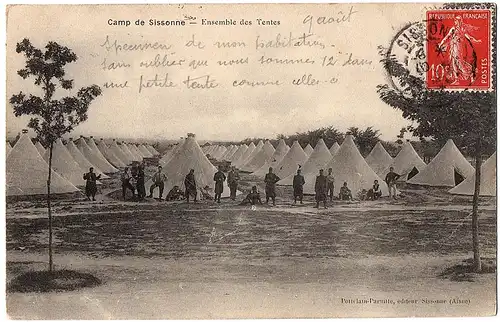 Camp de Sissonne — Ensemble des Tentes
9 août
Specimen de mon habitation
sans oublier que nous sommes 12 dans
une petite tente comme celle-ci
RÉPUBLIQUE FRANÇAISE
10
POSTES
SISSONNE
Pottelain-Parmitte, éditeur, Sissonne (Aisne)